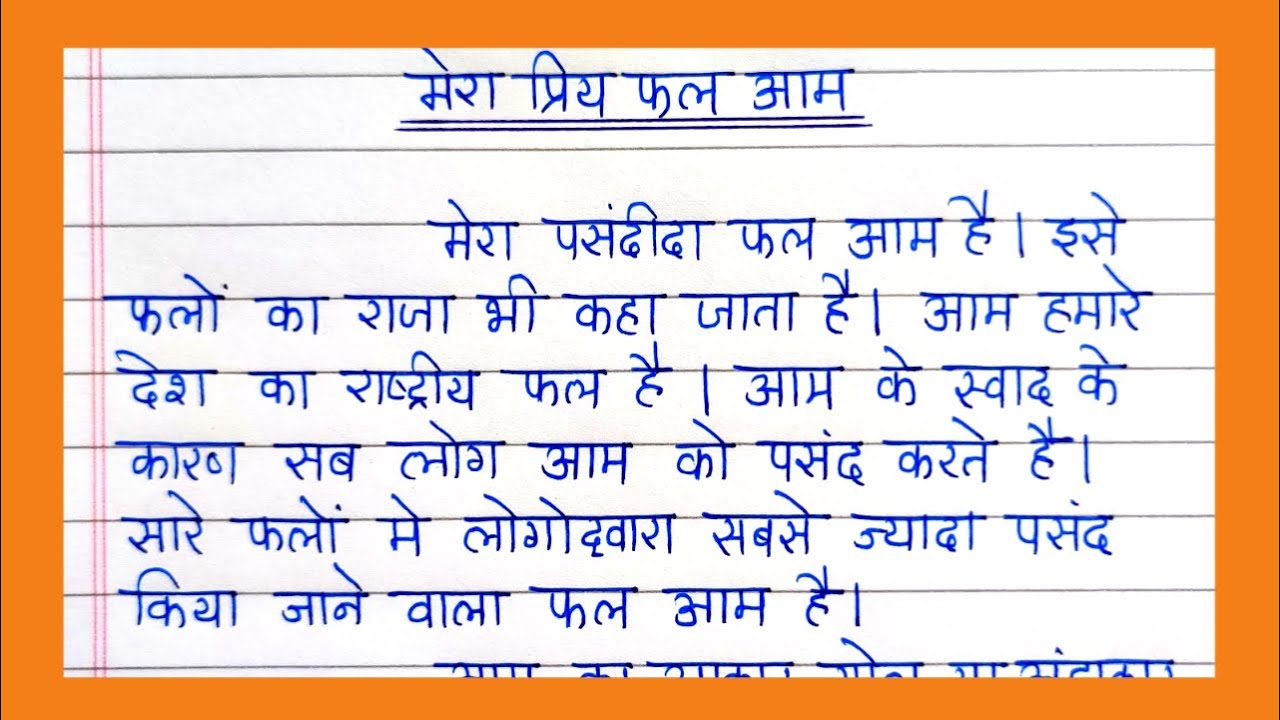 मेरा प्रिय फल आम
मेरा पसंदीदा फल आम है। इसे
फलों का राजा भी कहा जाता है। आम हमारे
देश का राष्ट्रीय फल है। आम के स्वाद के
कारण सब लोग आम को पसंद करते है।
सारे फलों मे लोगोद्वारा सबसे ज्यादा पसंद
किया जाने वाला फल आम है।